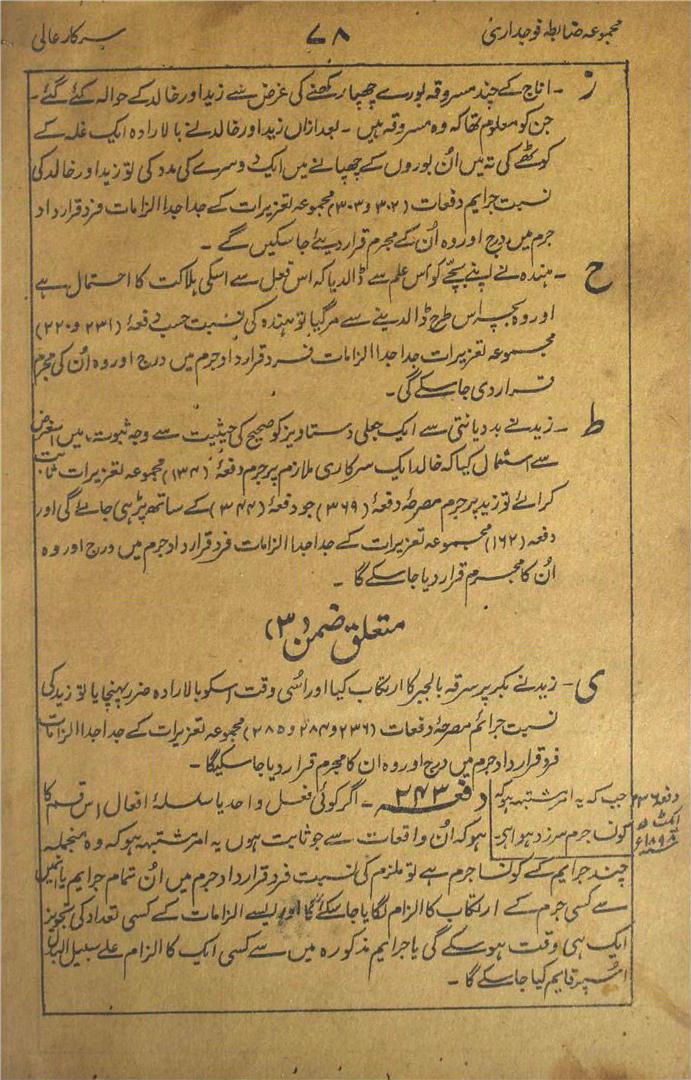 مجموعہ ضابطہ فوجداری
۷۸
سرکار عالی
ز ۔ اناج کے چند مسروقہ بورے چھپا رکھنے کی غرض سے زید اور خالد کے حوالہ کئے گئے ۔
جن کو معلوم تھا کہ وہ مسروقہ ہیں ۔ بعد ازاں زید اور خالد نے بالارادہ ایک غلہ کے
کوٹھے کی تہ میں اُن بوروں کے چھپانے میں ایک دوسرے کی مدد کی تو زید اور خالد کی
نسبت جرایم دفعات (۳۰۲ و ۳۰۳) مجموعہ تعزیرات کے جدا جدا الزامات فرد قرار داد
جرم میں درج اور وہ اُن کے مجرم قرار دیئے جا سکیں گے ۔
ح ۔ ہندہ نے اپنے بچّے کو اس علم سے ڈالدیا کہ اس فعل سے اسکی ہلاکت کا احتمال ہے
اور وہ بچہ اس طرح ڈالدینے سے مرگیا تو ہندہ کی نسبت حسب دفعۂ (۲۳۱ و ۲۲۰)
مجموعہ تعزیرات جدا جدا الزامات فرد قرار داد جرم میں درج اور وہ اُن کی مجرم
قرار دی جا سکے گی ۔
ط ۔ زید نے بددیانتی سے ایک جعلی دستاویز کو صحیح کی حیثیت سے وجہ ثبوت میں اس غرض
سے استعمال کیا کہ خالد ایک سرکاری ملازم پر جرم دفعۂ (۱۳۴) مجموعہ تعزیرات ثابت
کرائے تو زید پر جرم مصرحہ دفعۂ (۳۶۹) جو دفعۂ (۳۴۴) کے ساتھ پڑہی جائے گی اور
دفعہ (۱۶۲) مجموعہ تعزیرات کے جدا جدا الزامات فرد قرار داد جرم میں درج اور وہ
اُن کا مجرم قرار دیا جا سکے گا ۔
متعلق ضمن (۳)
ی ۔ زید نے بکر پر سرقہ بالجبر کا ارتکاب کیا اور اُسی وقت اسکو بالارادہ ضرر پہنچایا تو زید کی
نسبت جرائم مصرحۂ دفعات (۲۳۶ و ۲۸۴ و ۲۸۵) مجموعہ تعزیرات کے جدا جدا الزامات
فرد قرار داد جرم میں درج اور وہ ان کا مجرم قرار دیا جا سکیگا ۔
دفعہ ۲۳۶ ایکٹ ۵ ۱۸۹۸ء
جب کہ یہ امر مشتبہ ہو کہ کونسا جرم سرزد ہوا ہی
دفعہ ۲۴۳ ۔ اگر کوئی فعل واحد یا سلسلۂ افعال اس قسم کا
ہو کہ اُن واقعات سے جو ثابت ہوں یہ امر مشتبہ ہو کہ وہ منجملہ
چند جرایم کے کونسا جرم ہے تو ملزم کی نسبت فرد قرار داد جرم میں اُن تمام جرایم یا انمیں
سے کسی جرم کے ارتکاب کا الزام لگایا جا سکے گا اور ایسے الزامات کے کسی تعداد کی تجویز
ایک ہی وقت ہو سکے گی یا جرایم مذکورہ میں سے کسی ایک کا الزام علے سبیل البدل
اُسپر قایم کیا جا سکے گا ۔